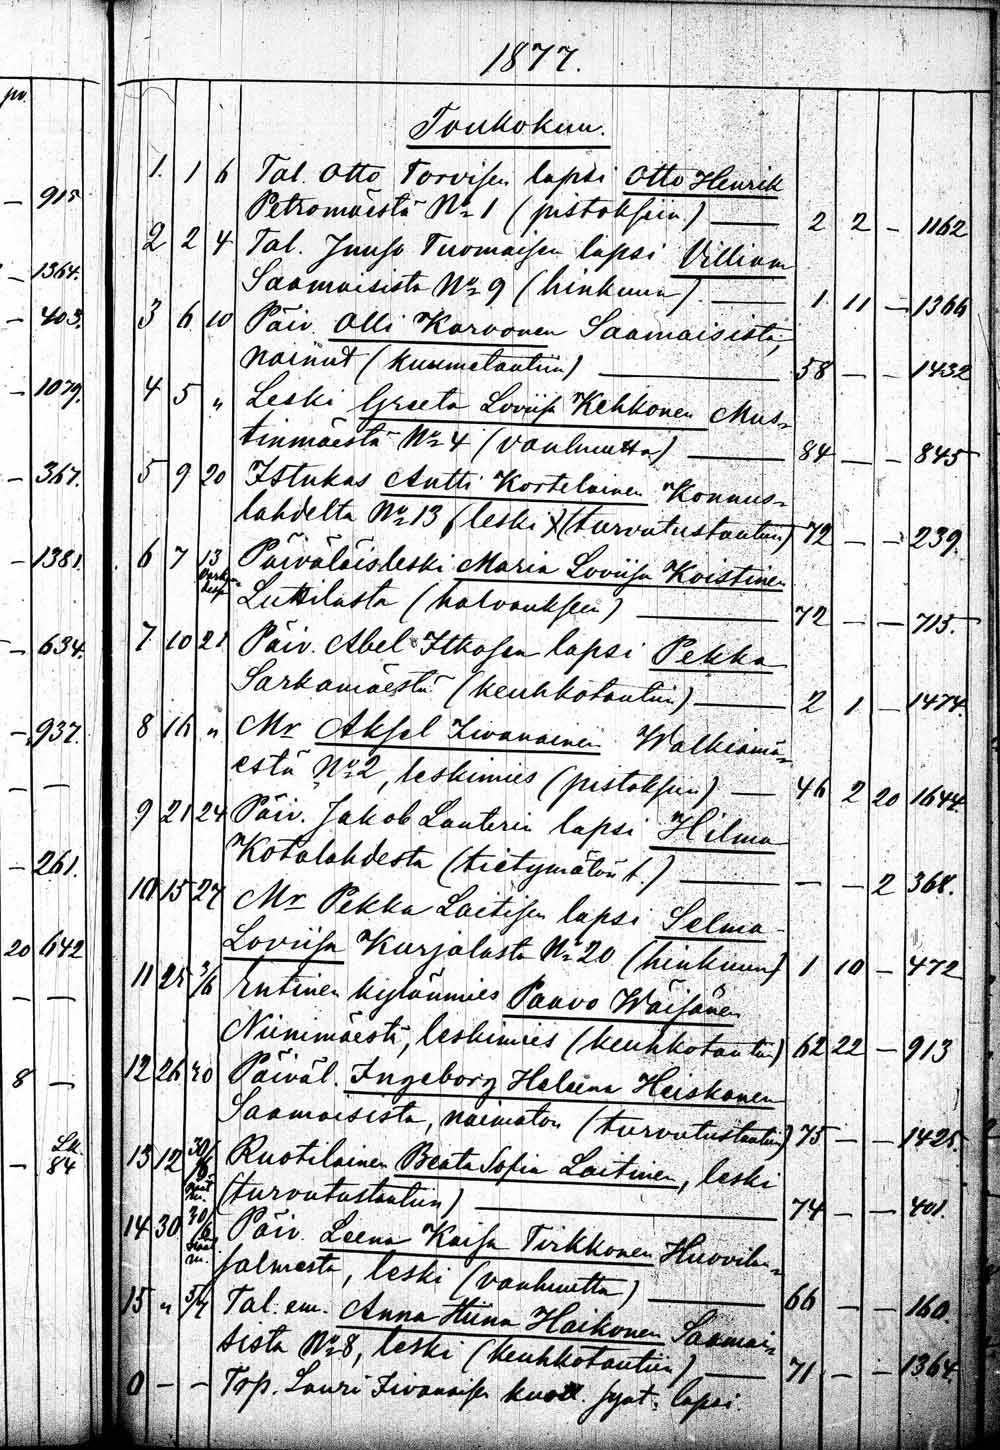 1877.
pv.
Toukokuu.
1. 1 6 Tal. Otto Torvisen lapsi Otto Henrik
— 915
Petromäestä No 1 (pistoksiin) — 2 2 — 1162
2 2 4 Tal. Juuso Tuomaisen lapsi Villiam
— 1364.
Saamaisista No 9 (hinkuun). — 1 11 — 1366
— 403. 3 6 10 Päiv. Olli Karvonen Saamaisista,
nainut (kuumetautiin) — 58 — — 1432
— 1079. 4 5 „ Leski Greeta Loviisa Kehkonen Mus-
tinmäestä No 4 (vanhuutta) — 84 — — 845
— 367. 5 9 20 Istukas Antti Kortelainen Konnus-
lahdelta No 13 (leski) (turvutustautiin) 72 — — 239.
— 1381. 6 7 13 Päiväläisleski Maria Loviisa Koistinen
Luttilasta (halvaukseen) — 72 — — 713.
— 634. 7 10 21 Päiv. Abel Itkosen lapsi Pekka
Sarkamäestä (keuhkotautiin) — 2 1 — 1474.
— 937. 8 16 „ Mr Aksel Iivanainen Walkiamä-
estä No 2, leskimies (pistoksiin) — 46 2 20 1644.
— —
9 21 24 Päiv. Jakob Lauterin lapsi Hilma
— 261. Kotalahdesta (tietymätöin t.) — — — 2 368.
10 15 27 Mr Pekka Laitisen lapsi Selma
20 642 Loviisa Kurjalasta No 20 (hinkuun) 1 10 — 472
— — 11 25 3/6 Entinen kylänmies Paavo Wäisänen
Niinimäestä, leskimies (keuhkotautiin) 62 22 — 913
8 — 12 26 10 Päiväl. Ingeborg Heleena Heiskanen
Saamaisista, naimaton (turvutustautiin) 75 — — 1425.
— Lk. 84 13 12 30/6 Ruotilainen Beata Sofia Laitinen, leski
(turvutustautiin) — 74 — — 401.
14 30 30/6 Päiv. Leena Kaisa Tirkkonen Huovilan-
salmesta, leski (vanhuutta) — 66 — — 160.
15 „ 5/7 Tal. em. Anna Stiina Haikonen Saamai-
sista No 8, leski (keuhkotautiin) — 71 — — 1364.
0 — — Trp. Lauri Iivanaisen kuoll. synt. lapsi.